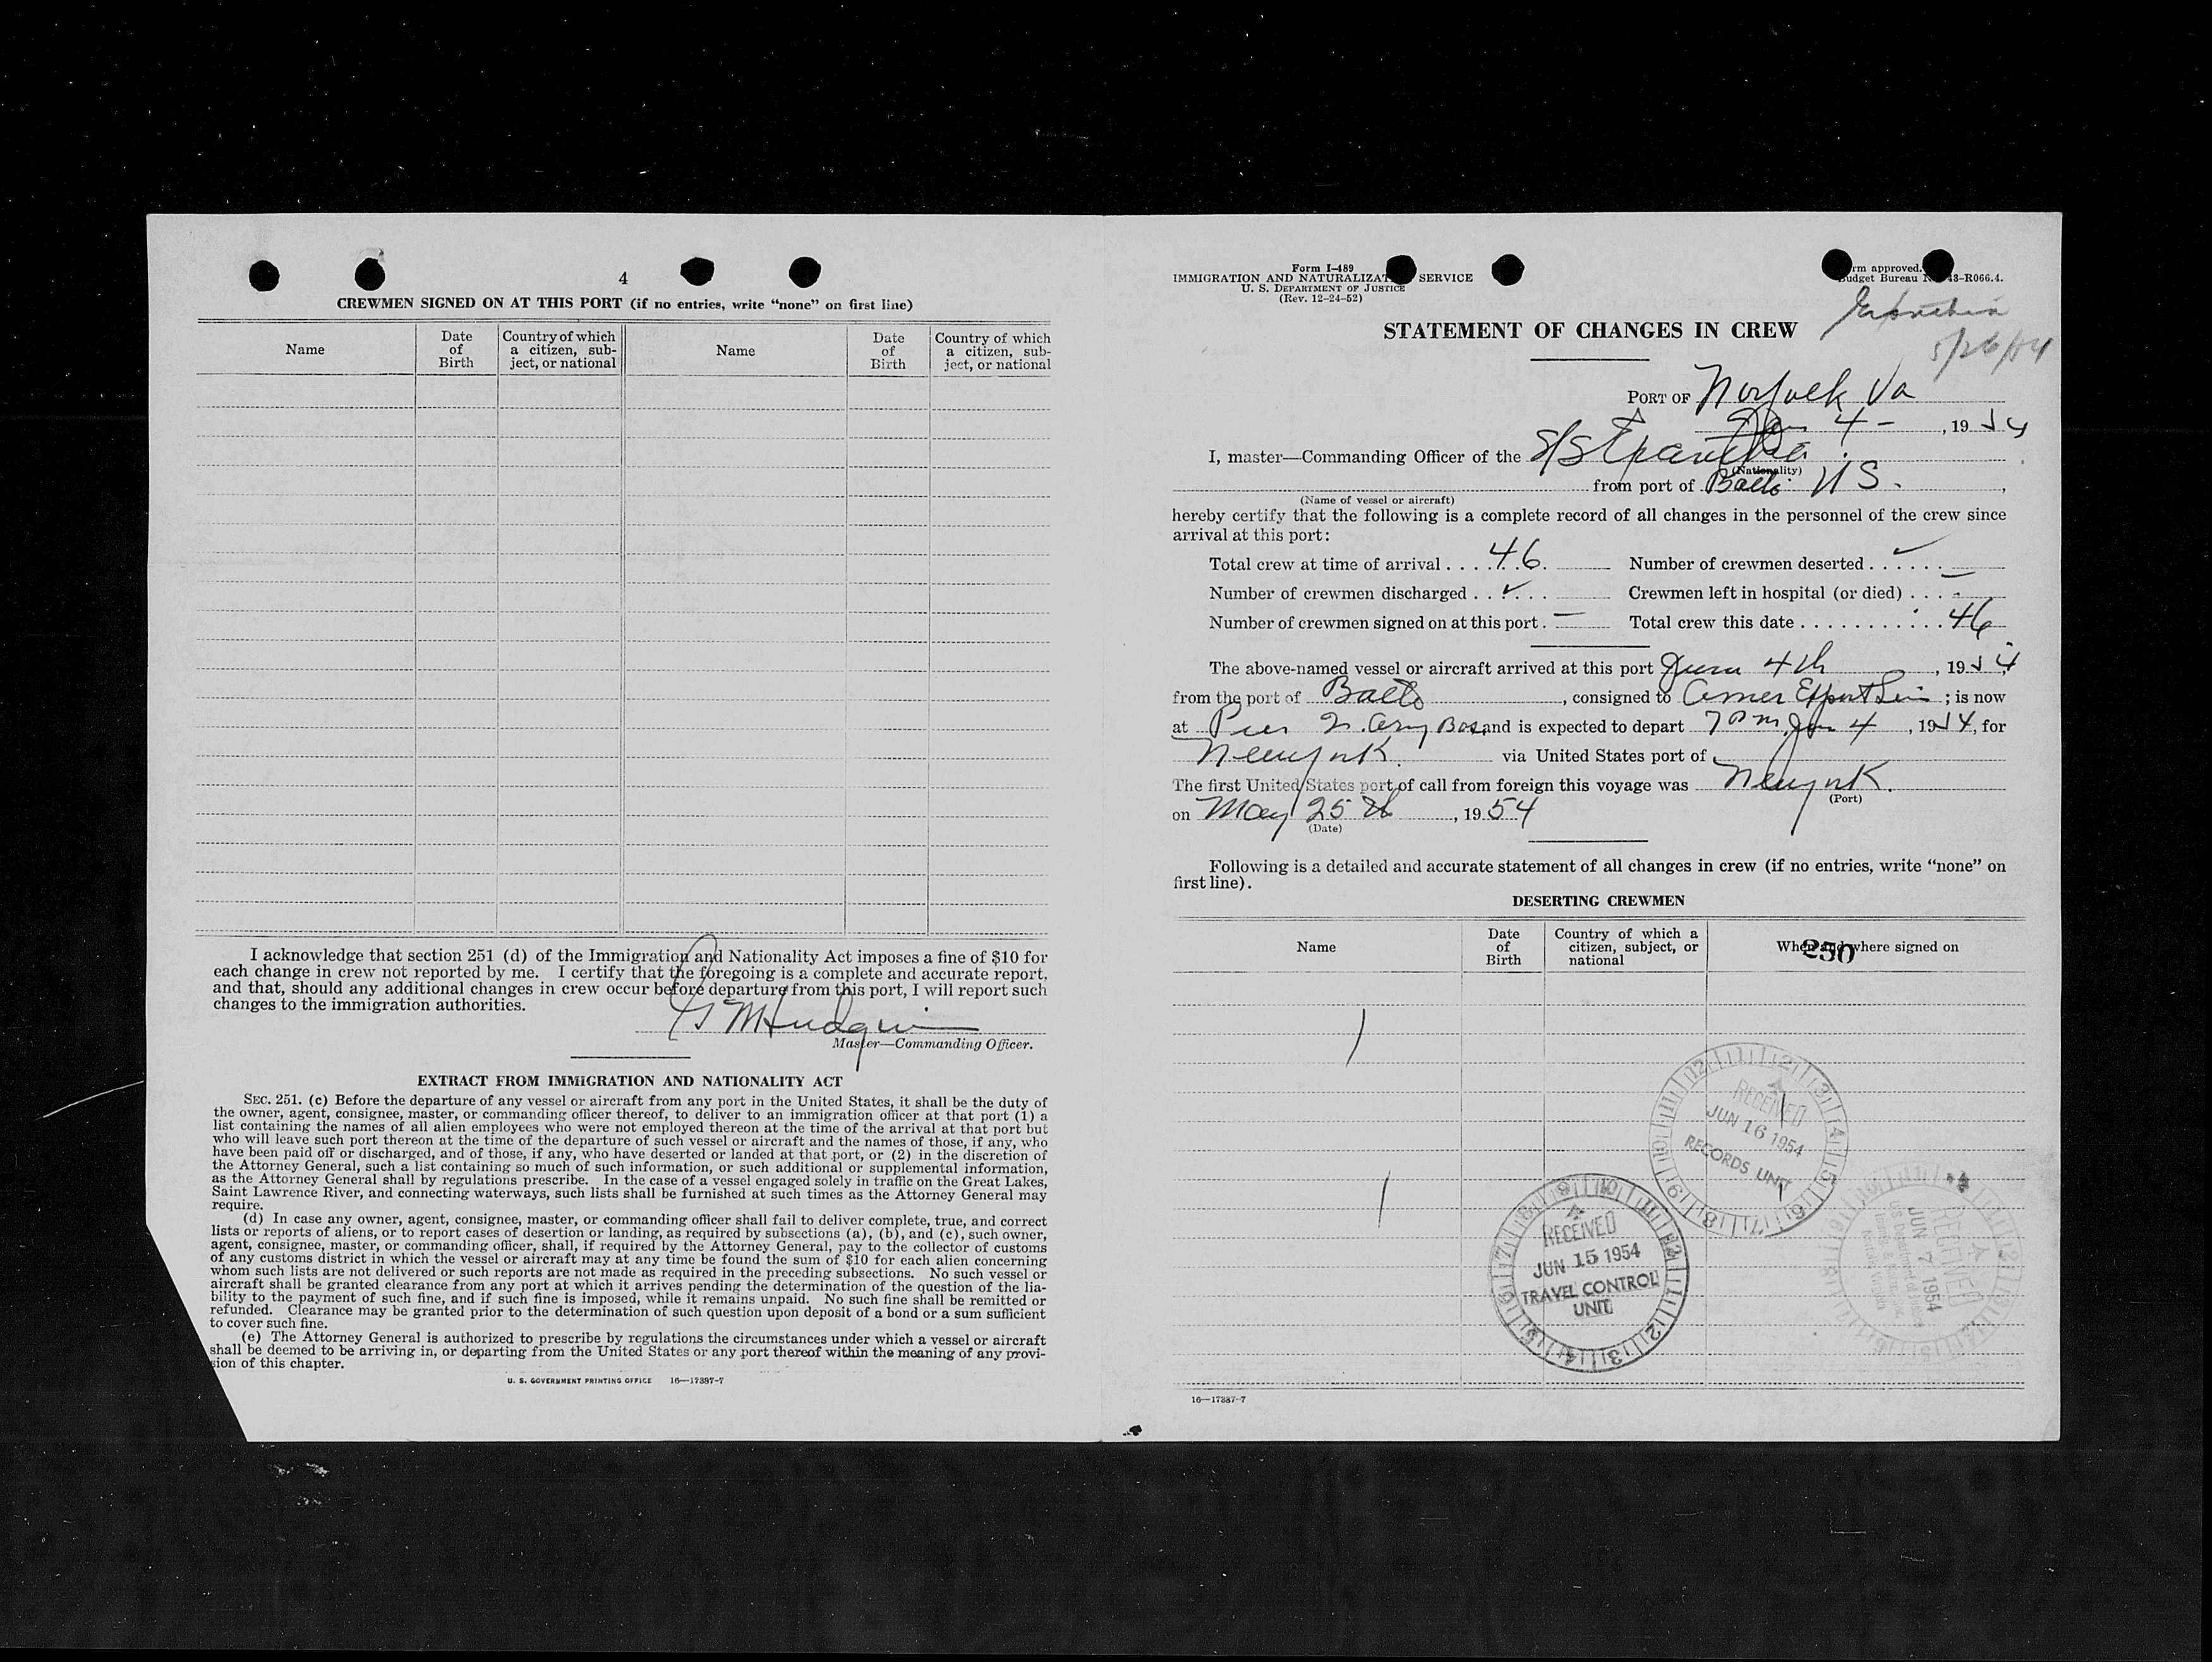 4
CREWMEN SIGNED ON AT THIS PORT (if no entries, write “none” on first line)
Name
Date of Birth
Country of which a citizen, subject, or national
Name
Date of Birth
Country of which a citizen, subject, or national
I acknowledge that section 251 (d) of the Immigration and Nationality Act imposes a fine of $10 for
each change in crew not reported by me. I certify that the foregoing is a complete and accurate report,
and that, should any additional changes in crew occur before departure from this port, I will report such
changes to the immigration authorities.
Master—Commanding Officer.
EXTRACT FROM IMMIGRATION AND NATIONALITY ACT
SEC. 251. (c) Before the departure of any vessel or aircraft from any port in the United States, it shall be the duty of
the owner, agent, consignee, master, or commanding officer thereof, to deliver to an immigration officer at that port (1) a
list containing the names of all alien employees who were not employed thereon at the time of the arrival at that port but
who will leave such port thereon at the time of the departure of such vessel or aircraft and the names of those, if any, who
have been paid off or discharged, and of those, if any, who have deserted or landed at that port, or (2) in the discretion of
the Attorney General, such a list containing so much of such information, or such additional or supplemental information,
as the Attorney General shall by regulations prescribe. In the case of a vessel engaged solely in traffic on the Great Lakes,
Saint Lawrence River, and connecting waterways, such lists shall be furnished at such times as the Attorney General may
require.
(d) In case any owner, agent, consignee, master, or commanding officer shall fail to deliver complete, true, and correct
lists or reports of aliens, or to report cases of desertion or landing, as required by subsections (a), (b), and (c), such owner,
agent, consignee, master, or commanding officer, shall, if required by the Attorney General, pay to the collector of customs
of any customs district in which the vessel or aircraft may at any time be found the sum of $10 for each alien concerning
whom such lists are not delivered or such reports are not made as required in the preceding subsections. No such vessel or
aircraft shall be granted clearance from any port at which it arrives pending the determination of the question of the lia-
bility to the payment of such fine, and if such fine is imposed, while it remains unpaid. No such fine shall be remitted or
refunded. Clearance may be granted prior to the determination of such question upon deposit of a bond or a sum sufficient
to cover such fine.
(e) The Attorney General is authorized to prescribe by regulations the circumstances under which a vessel or aircraft
shall be deemed to be arriving in, or departing from the United States or any port thereof within the meaning of any provi-
sion of this chapter.
U. S. GOVERNMENT PRINTING OFFICE 16—17387-7
Form I-489
IMMIGRATION AND NATURALIZAT SERVICE
U. S. DEPARTMENT OF JUSTICE
(Rev. 12-24-52)
rm approved.
udget Bureau N 43-R066.4.
5/26/54
STATEMENT OF CHANGES IN CREW
PORT OF Norfolk Va
4 - , 19 54
I, master—Commanding Officer of the S/S
(Nationality)
from port of Balto. US.
(Name of vessel or aircraft)
hereby certify that the following is a complete record of all changes in the personnel of the crew since
arrival at this port:
Total crew at time of arrival .... 46. Number of crewmen deserted ......
Number of crewmen discharged .... Crewmen left in hospital (or died) .... -
Number of crewmen signed on at this port . — Total crew this date .......... 46
The above-named vessel or aircraft arrived at this port June 4th , 19 54
from the port of Balto , consigned to Amer Export Lin ; is now
at Pier 2. Army Bas and is expected to depart 7 PM Jun 4 , 1954, for
New York. via United States port of
The first United States port of call from foreign this voyage was New York.
(Port)
on May 25th , 19 54
(Date)
Following is a detailed and accurate statement of all changes in crew (if no entries, write “none” on
first line).
DESERTING CREWMEN
Name
Date of Birth
Country of which a citizen, subject, or national
When and where signed on
250
RECEIVED
JUN 16 1954
RECORDS UNIT
RECEIVED
JUN 15 1954
TRAVEL CONTROL
UNIT
RECEIVED
JUN 7 1954
16—17387-7